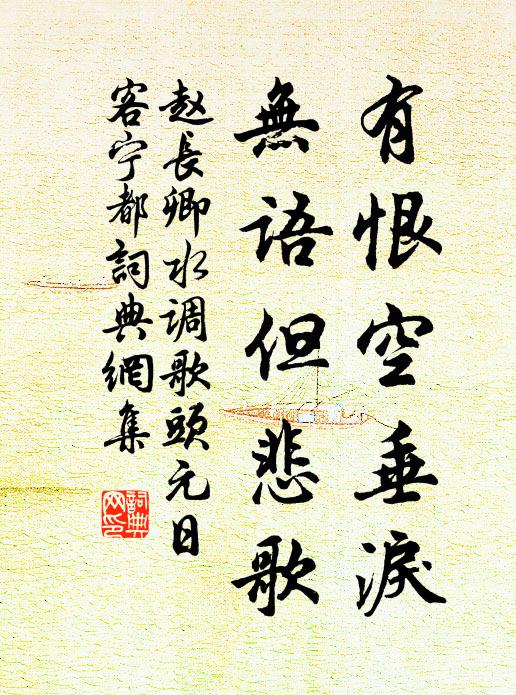 有恨空垂淚
無語但悲歌
赵長卿水调歌頭元日
客宁都詞典網集
詞典
网印